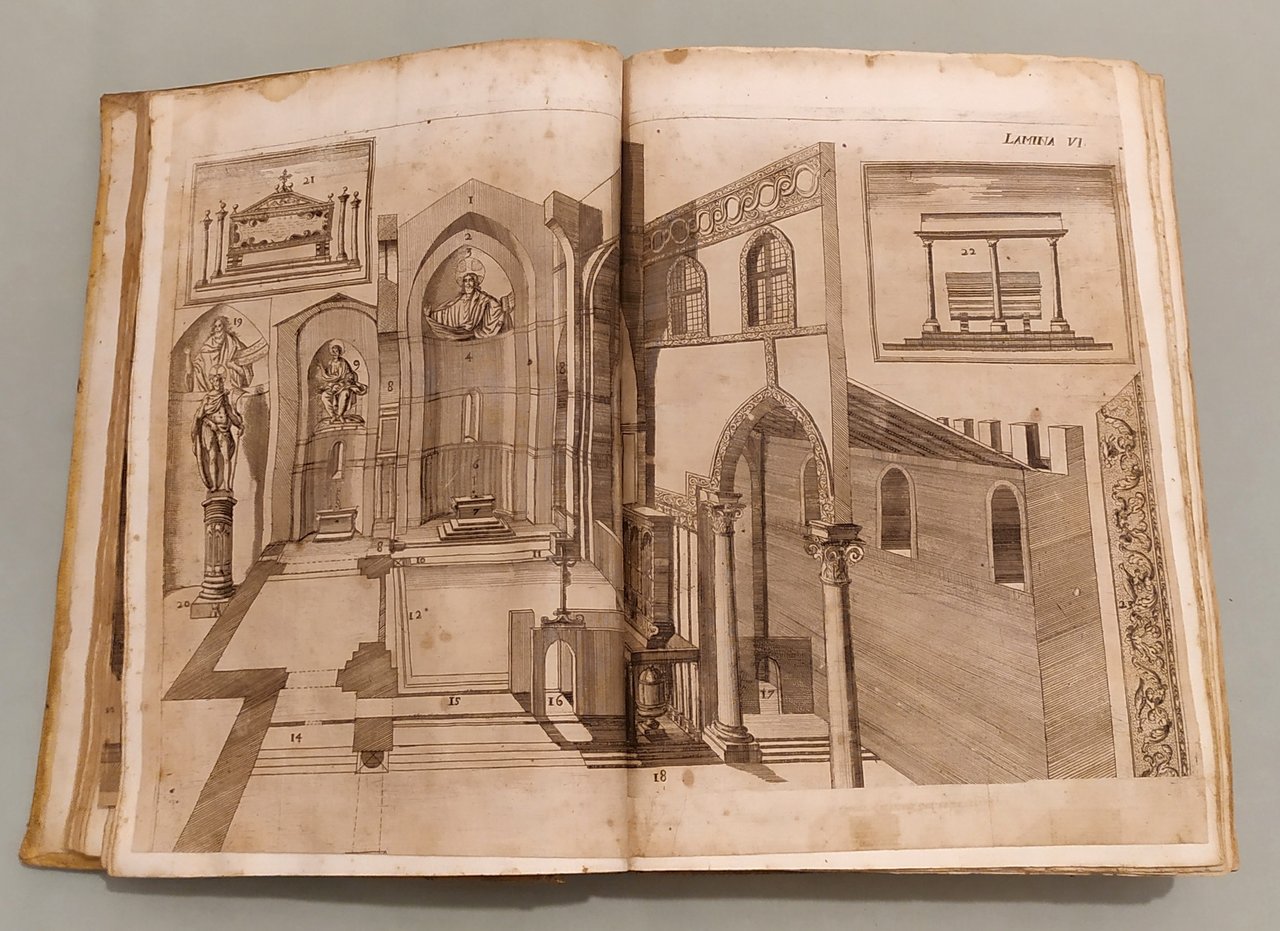 LAMINA VI.
21
1
2
3
22
19
4
9
8
8
6
7
8
10
11
12
20
15
16
17
14
18